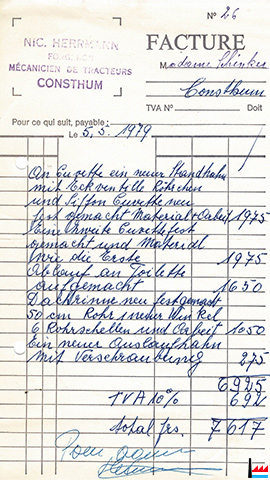 Nº 26
NIC. HERRMANN
FORGERON
MÉCANICIEN DE TRACTEURS
CONSTHUM
FACTURE
Madame Schinker
Consthum
TVA Nº Doit
Pour ce qui suit, payable:
Le 5.3.1979
An Cuvette ein neuer Standhahn
mit Eckventille Röhrchen
und Siffon Cuvette neu
fest gemacht Material + Arbeit 1975
Eine zweite Cuvette fest
gemacht und Material
wie die Erste 1975
Ablauf an Toilette
aufgemacht 1650
Dachrinne neu festgemacht
50 cm Rohr 1 neuer Winkel
6 Rohrschellen und Arbeit 1050
Ein neuer Auslaufhahn
mit Verschraubung 275
6925
TVA 10% 692
total frs. 7617
Pour